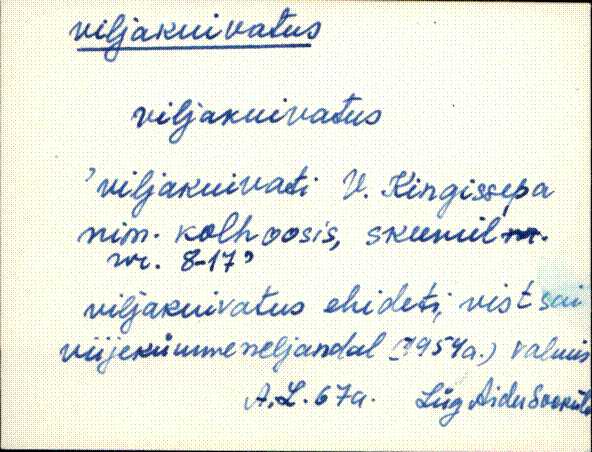 viljakuivatus
viljakuivatus
'viljakuivati V. Kingissepa
nim. kolhoosis, skeemil
nr. 8-17'
viljakuivatus ehideti, vist sai
viijekümmeneljandal (1954a.) valmis
A.L. 67a. Lüg Aidu Sooküla